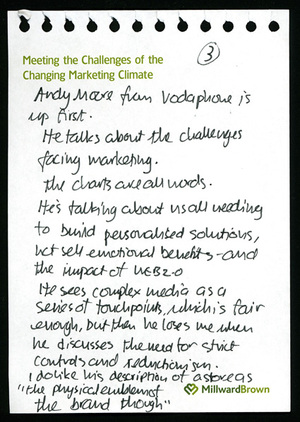 Meeting the Challenges of the
Changing Marketing Climate
3
Andy Moore from Vodaphone is
up first.
He talks about the challenges
facing marketing.
The charts are all words.
He's talking about us all needing
to build personalised solutions,
but sell emotional benefits - and
the impact of WEB 2.0
He sees complex media as a
series of touchpoints, which is fair
enough, but then he loses me when
he discusses the need for strict
controls and reductionism.
I do like his description of a store as
"the physical emblem of
the brand though"
MillwardBrown